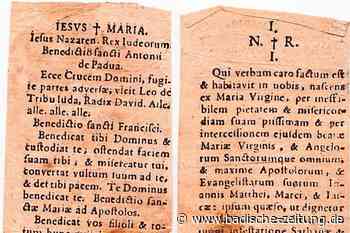 IESVS † MARIA.
Iesus Nazaren. Rex Iudeorum
Benedictio sancti Antonii
de Padua.
Ecce Crucem Domini, fugi-
te partes adversæ, vicit Leo de
Tribu Iuda, Radix David. Alle.
alle. alle. alle.
Benedictio sancti Francisci.
Benedicat tibi Dominus &
custodiat te, ostendat faciem
suam tibi, & misereatur tui,
convertat vultum suum ad te,
& det tibi pacem. Te Dominus
benedicat te. Benedictio san-
ctæ Mariæ ad Apostolos.
Benedicat vos filioli & to-
I.
N. † R.
I.
Qui verbum caro factum est
& habitavit in nobis, nascens
ex Maria Virgine, per ineffi-
bilem pietatem & misericor-
diam suam piissimam & per
intercessionem ejusdem beatæ
Mariæ Virginis, & Angelo-
rum Sanctorumque omnium,
& maxime Apostolorum, &
Evangelistarum suorum Io-
annis Matthei, Marci, & Lu-
cæ: ipse quæso, ut dignetur
© www.badische-zeitung.de